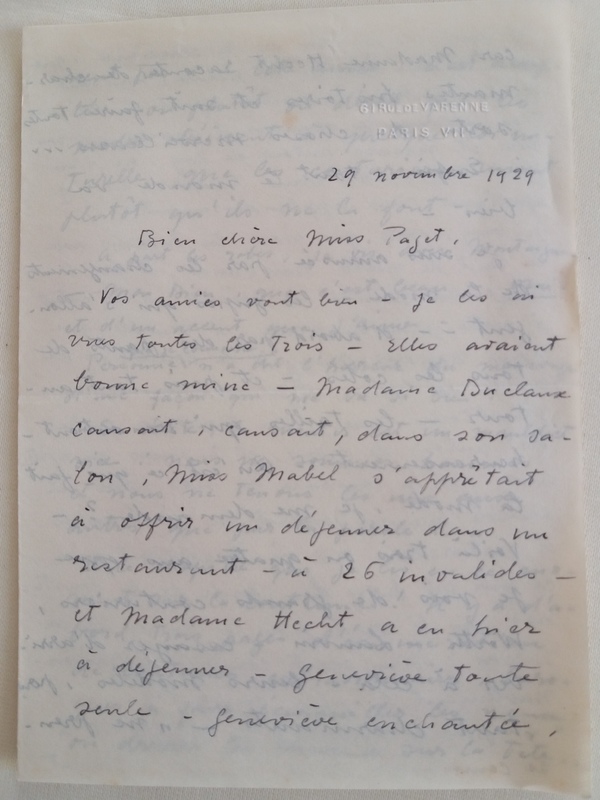 61 RUE DE VARENNE
PARIS VII
29 novembre 1929
Bien chère Miss Paget,
Vos amies vont bien – je les ai
vues toutes les trois – Elles avaient
bonne mine – Madame Duclaux
causait, causait, dans son sa-
lon, Miss Mabel s'apprêtait
à offrir un déjeuner dans un
restaurant – à 26 invalides –
et Madame Hecht a eu hier
à déjeuner – Geneviève toute
seule – Geneviève enchantée,